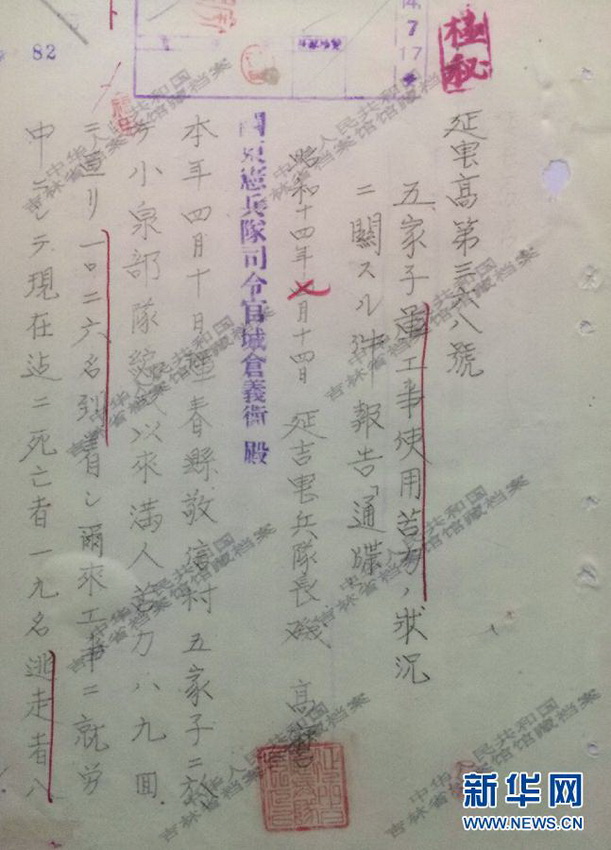 82
14.7
17
極秘
延憲高第三六八號
五家子軍工事使用苦力ノ狀況
ニ關スル件報告「通牒」
昭和十四年七月十四日 延吉憲兵隊長 磯 高麿
關東憲兵隊司令官城倉義衛 殿
本年四月十日琿春縣敬信村五家子ニ於
小泉部隊 以來滿人苦力八九回
ニ亘リ一〇二六名到着シ爾來工事ニ就労
中ニシテ現在迄ニ死亡者一九名逃走者八
中华人民共和国
吉林省档案馆馆藏档案
新华网
WWW.NEWS.CN